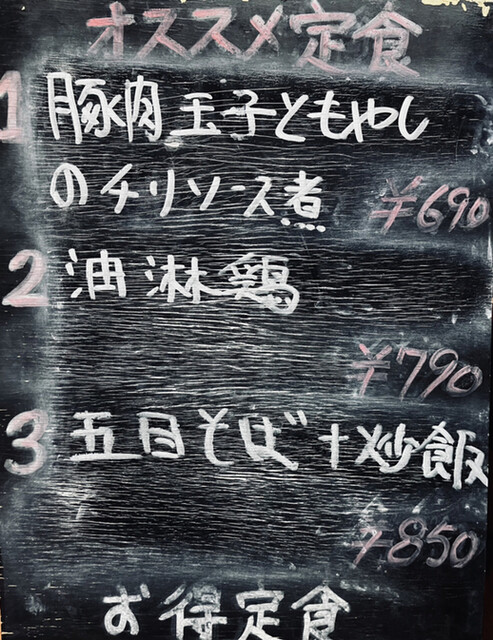 オススメ定食
1 豚肉玉子ともやし
のチリソース煮 ¥690
2 油淋鶏
¥790
3 五目そば+炒飯
¥850
お得定食